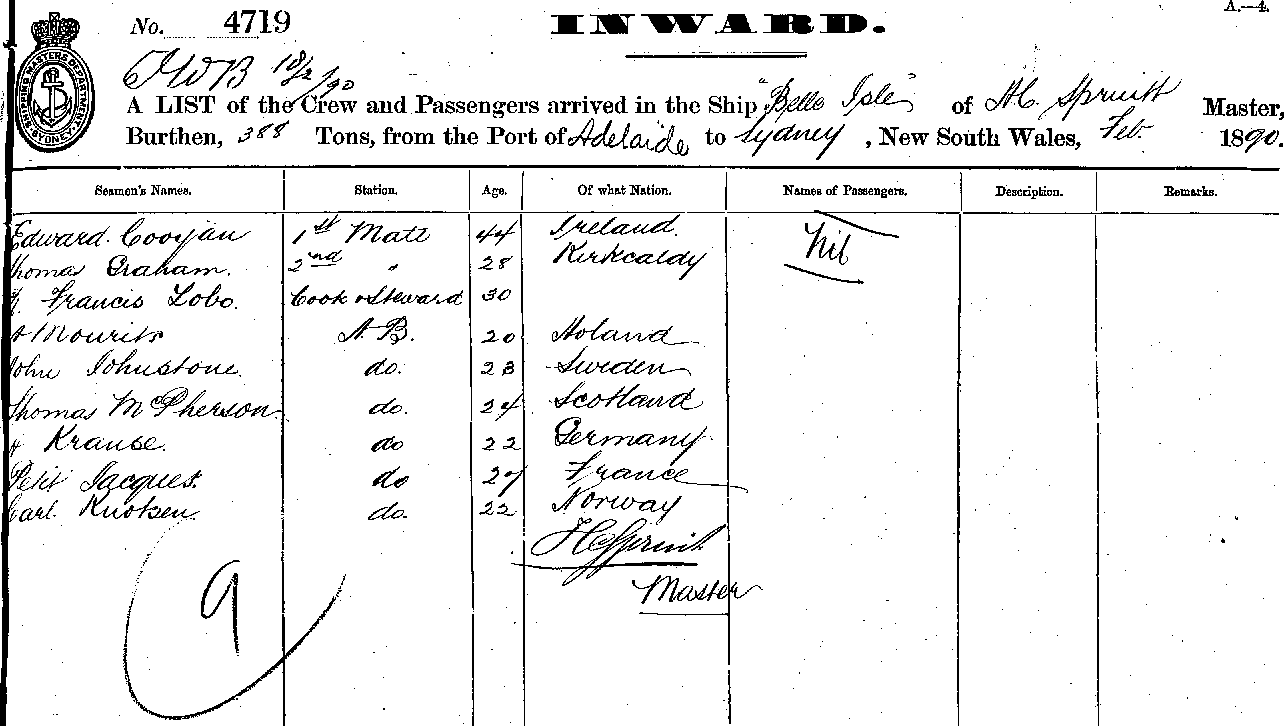 No. 4719 INWARD. A.—4.
SHIPPING MASTERS DEPARTMENT SYDNEY
18/2/90
A LIST of the Crew and Passengers arrived in the Ship "Belle Isle" of H C. Spruitt Master,
Burthen, 388 Tons, from the Port of Adelaide to Sydney, New South Wales, Feb 1890.
Seamen's Names. Station. Age. Of what Nation. Names of Passengers. Description. Remarks.
Edward 1st Mate 44 Ireland. Nil
Thomas Graham. 2nd " 28 Kirkcaldy
Francis Lobo. Cook & Steward 30
Mourits A.B. 20 Holand
John Johnstone do. 23 Sweden
Thomas McPherson do. 24 Scotland
Krause. do 22 Germany
Petit Jacques. do 27 France
Carl Knotsen. do. 22 Norway
HCSpruit
Master
9